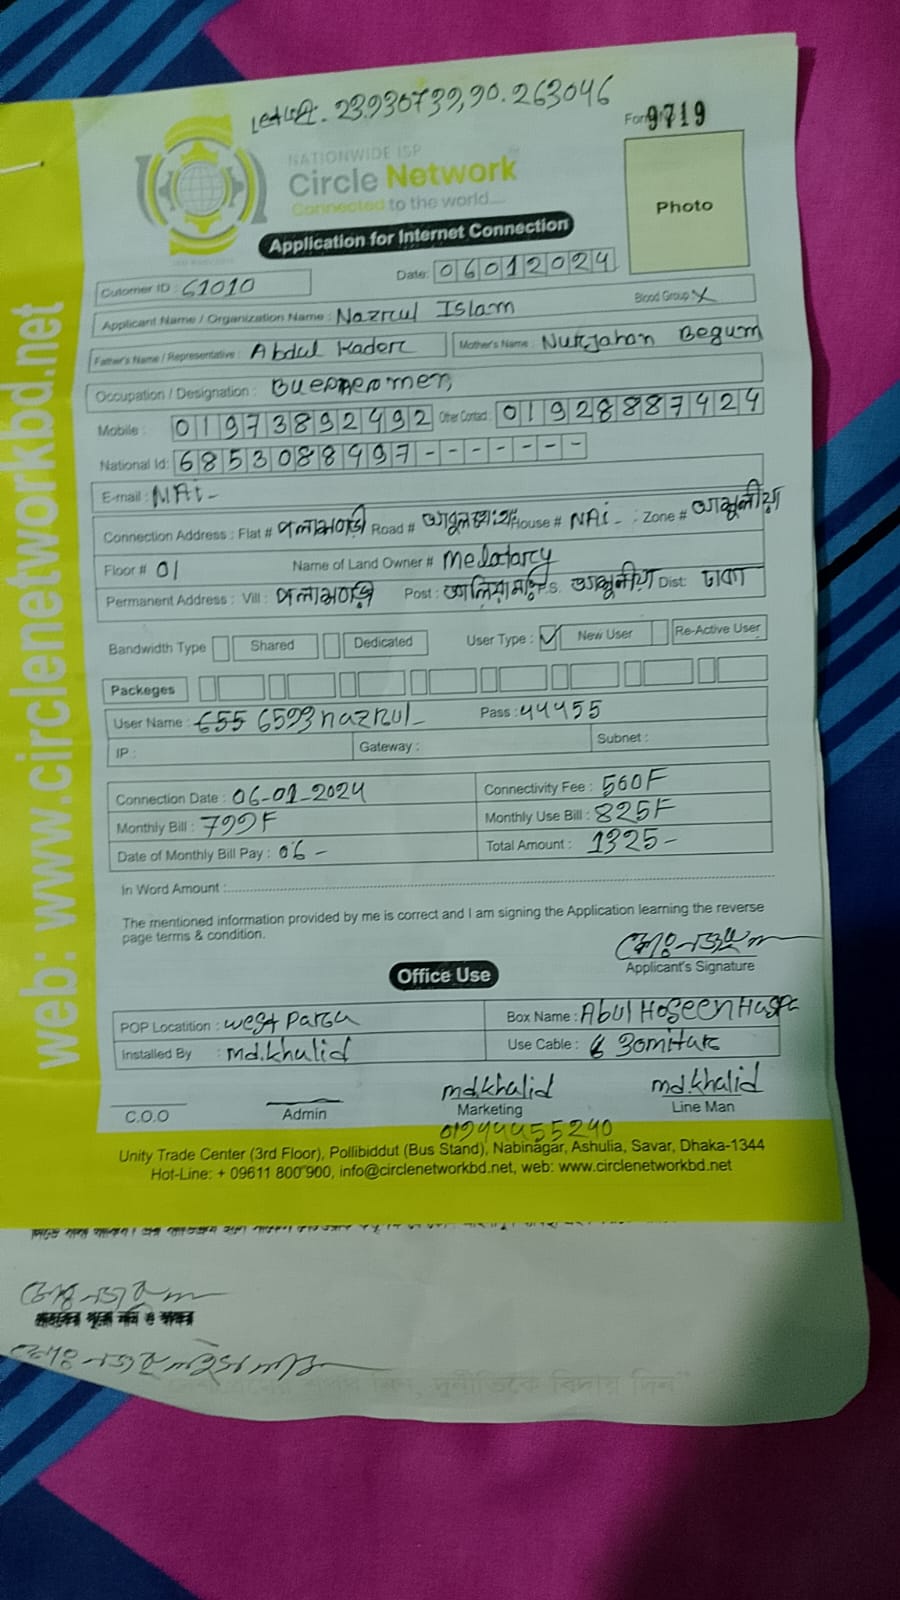 23.930739,90.263046
Form 9719
NATIONWIDE ISP
Circle Network
Connected to the world....
Photo
Application for Internet Connection
Cutomer ID : 61010
Date: 06012024
Applicant Name / Organization Name : Nazrul Islam
Blood Group X
Father's Name / Representative : Abdul Kader
Mother's Name : Nurjahan Begum
Occupation / Designation :
Mobile : 01973892492 Other Contact : 01928887424
National Id: 6853088497-------
E-mail : NAi-
Connection Address : Flat # পলাশবাড়ী Road # House # NAi - : Zone # আশুলীয়া
Floor # 01 Name of Land Owner #
Permanent Address : Vill : পলাশবাড়ী Post : P.S. আশুলীয়া Dist: ঢাকা
Bandwidth Type Shared Dedicated User Type : ✓ New User Re-Active User
Packeges
User Name : 655 6593nazrul- Pass : 44455
IP : Gateway : Subnet :
Connection Date : 06-01-2024 Connectivity Fee : 560F
Monthly Bill : 799F Monthly Use Bill : 825F
Date of Monthly Bill Pay : 06- Total Amount : 1325-
In Word Amount :
The mentioned information provided by me is correct and I am signing the Application learning the reverse
page terms & condition.
Applicant's Signature
Office Use
POP Locatition : west para Box Name : Abul Hoseen
Installed By : md.khalid Use Cable : 30mitar
md.khalid md.khalid
C.O.O Admin Marketing Line Man
01944455240
Unity Trade Center (3rd Floor), Pollibiddut (Bus Stand), Nabinagar, Ashulia, Savar, Dhaka-1344
Hot-Line: + 09611 800 900, info@circlenetworkbd.net, web: www.circlenetworkbd.net
web: www.circlenetworkbd.net
দুর্নীতিকে বিদায় দিন"